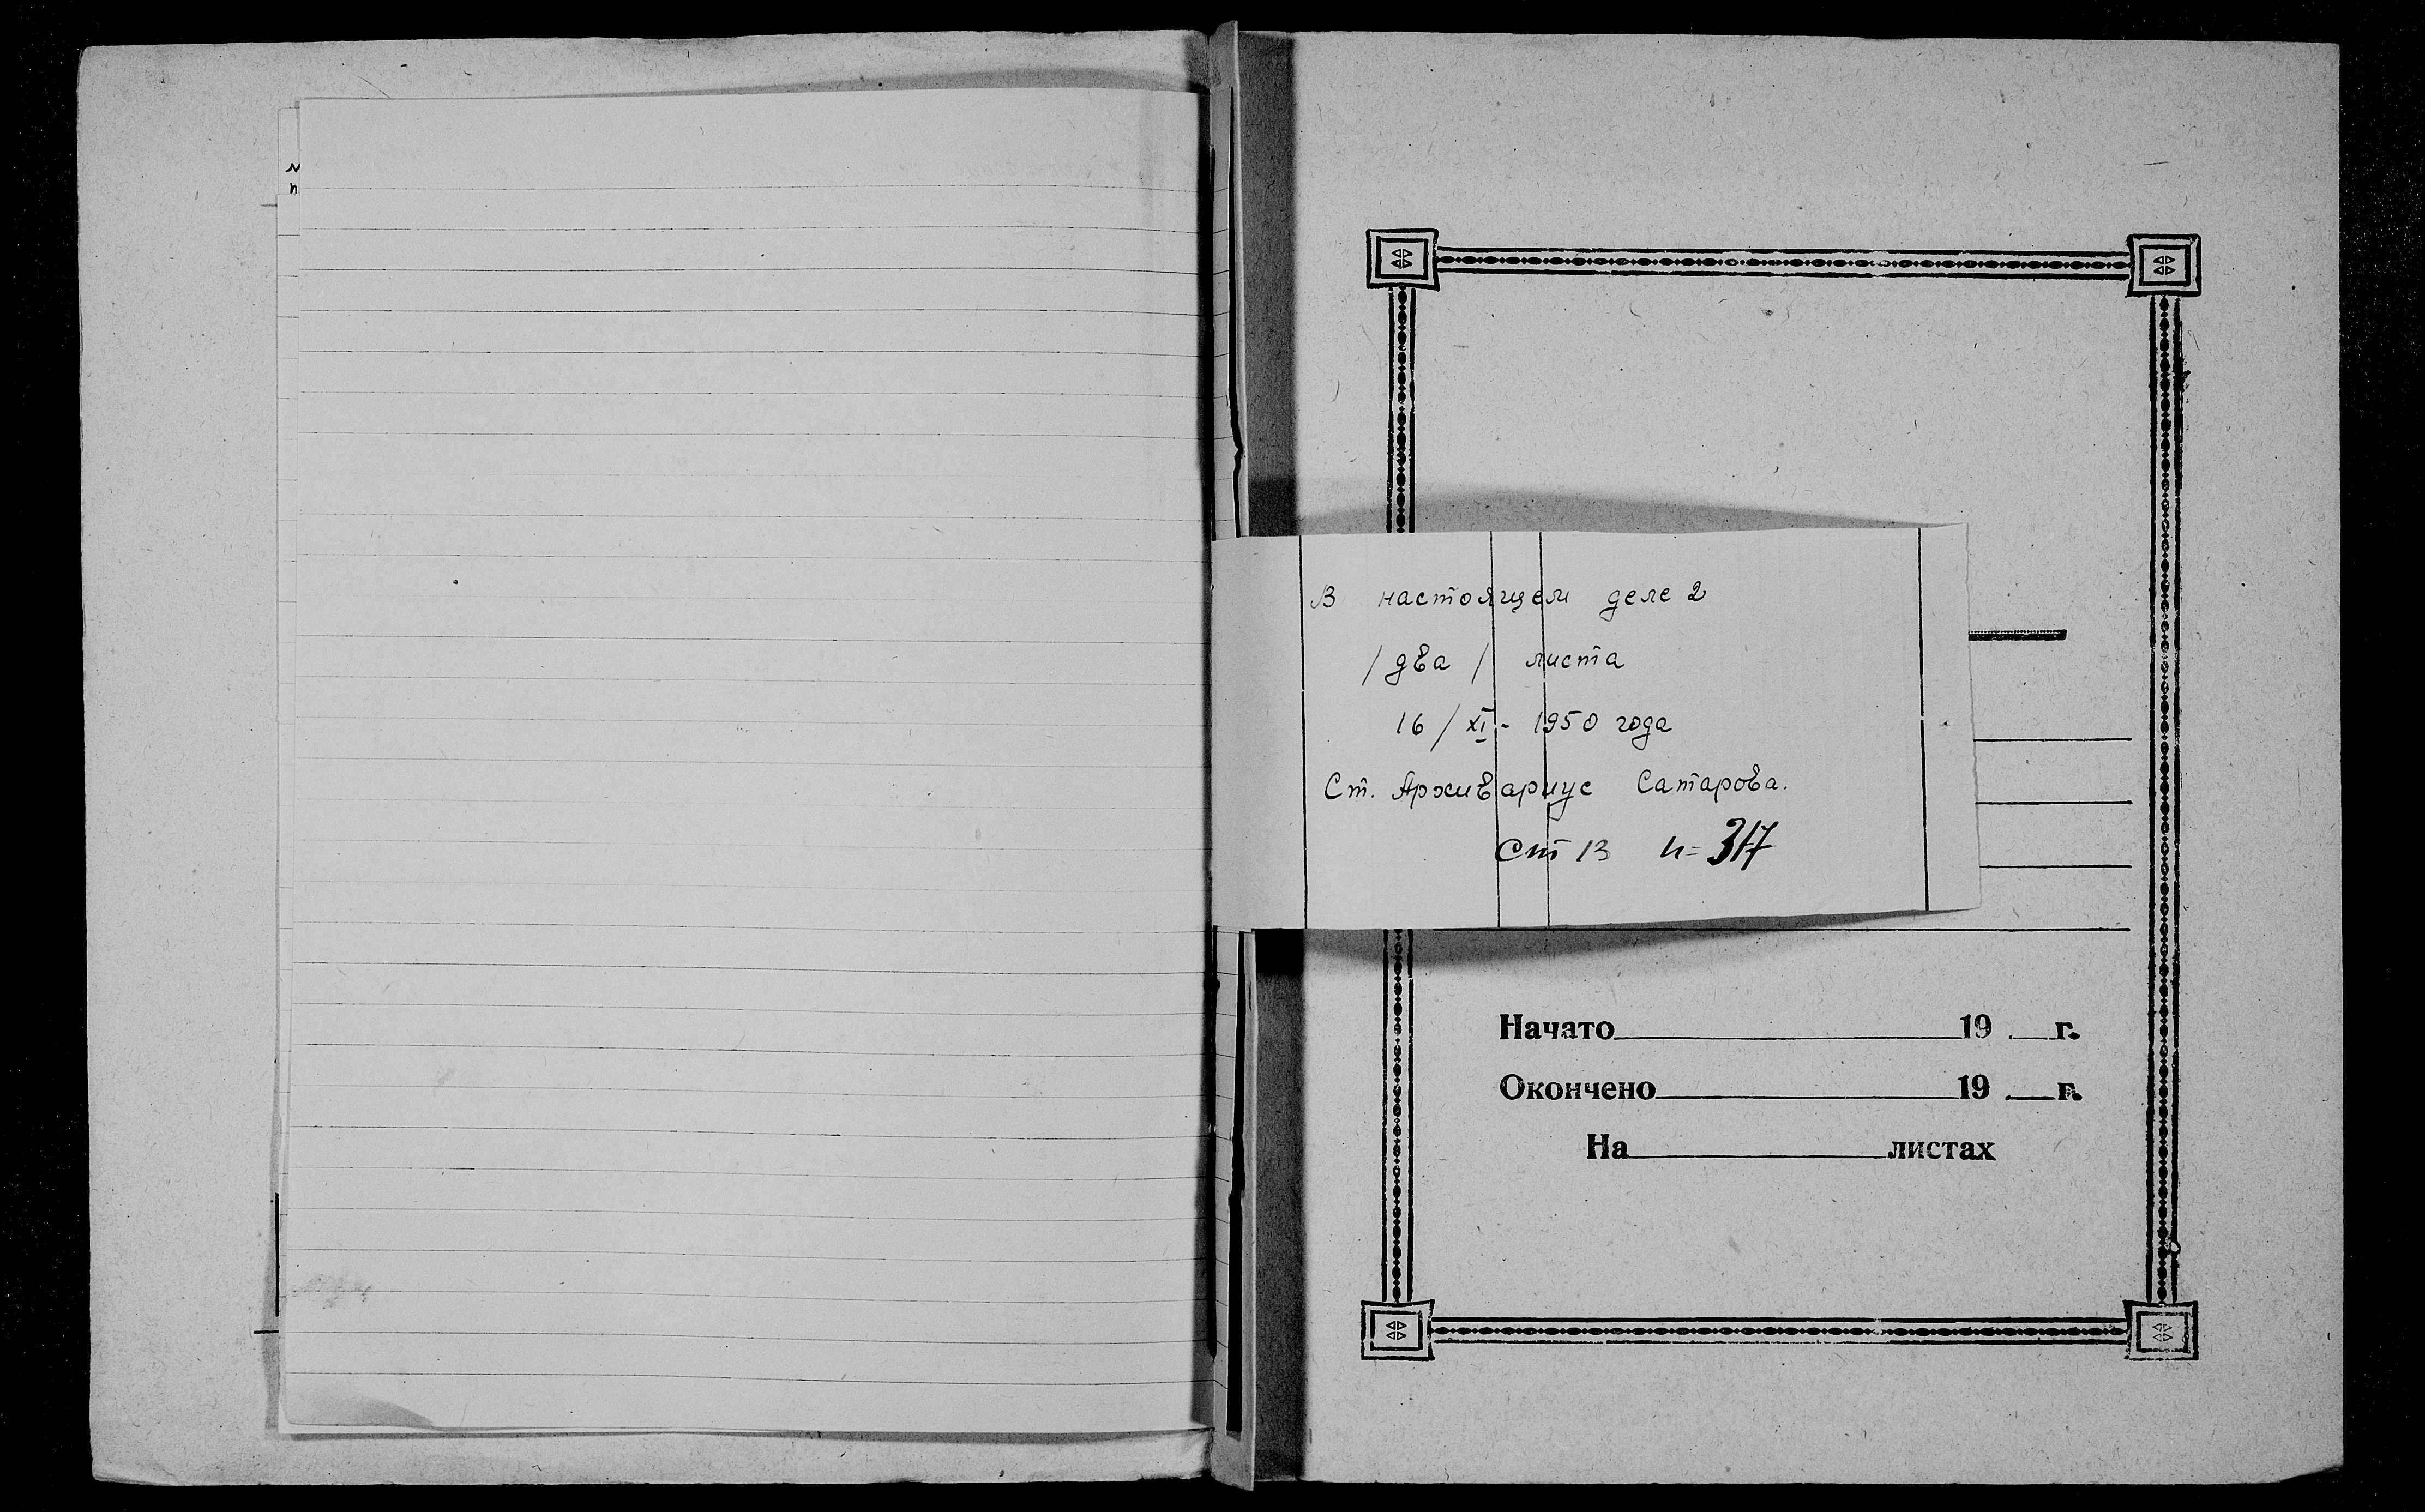 В настоящем деле 2
/ два / листа
16 / XI - 1950 года
Ст. Архивариус Сатарова.
Начато 19 г.
Окончено 19 г.
На листах